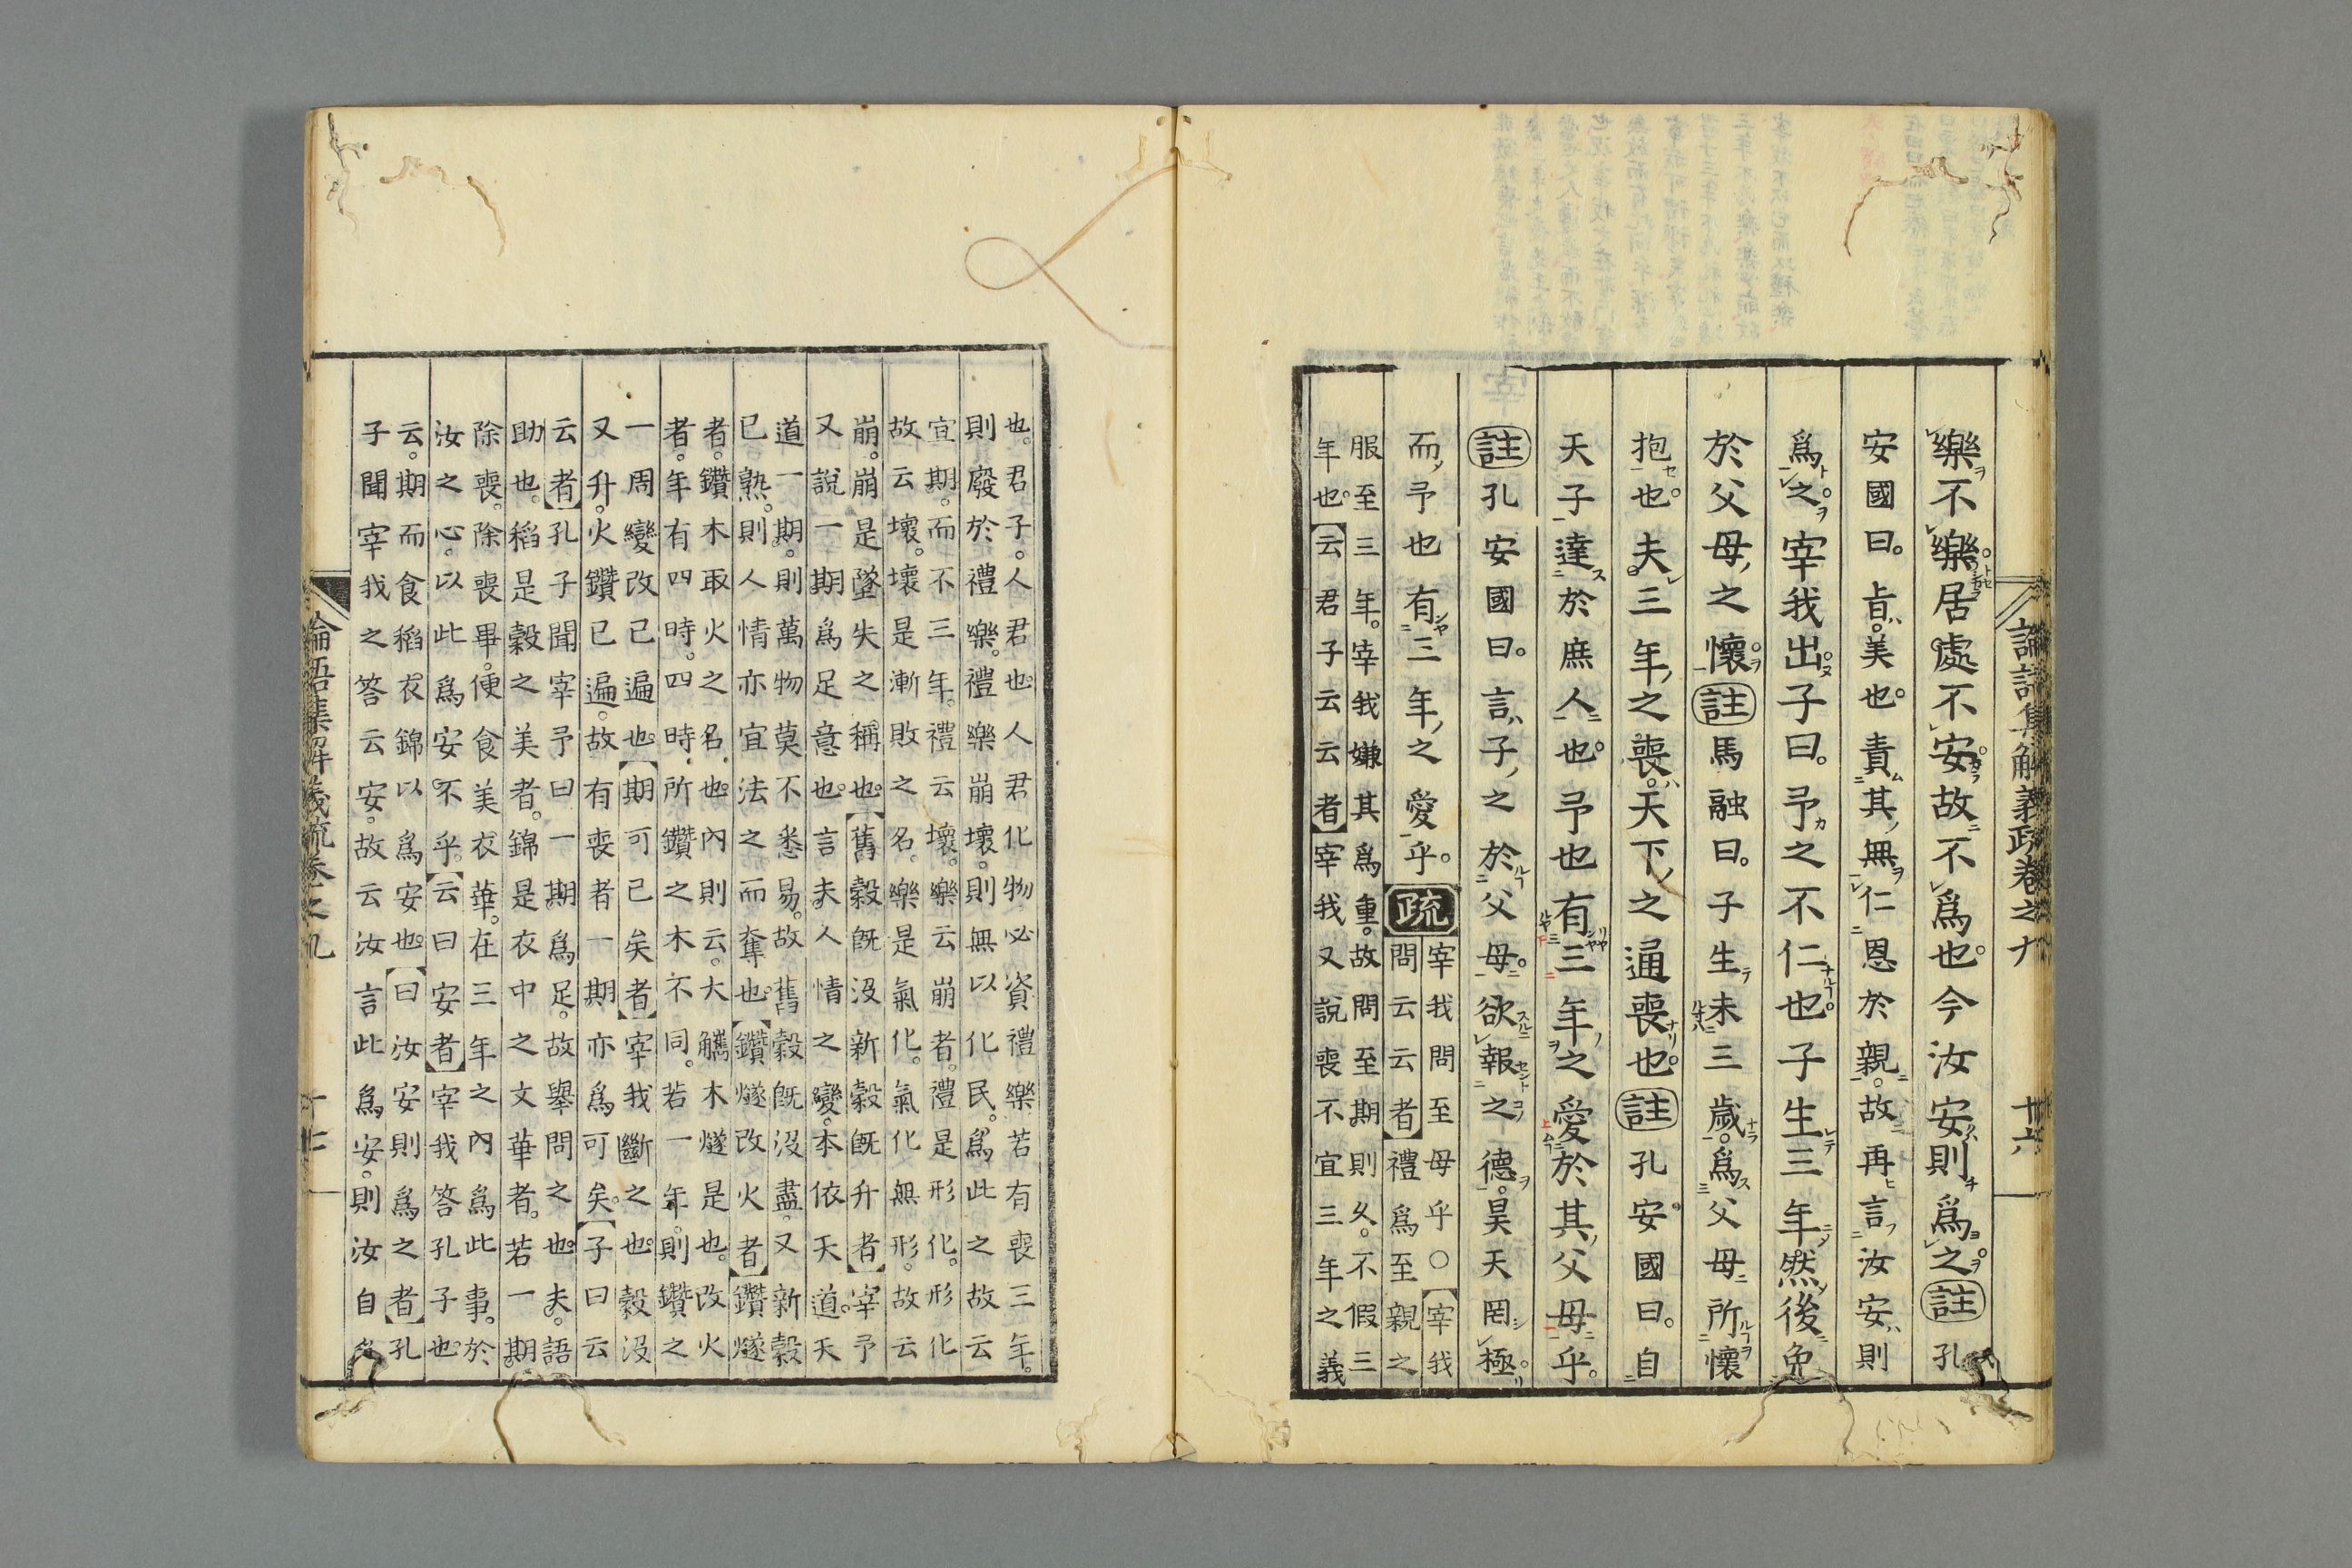 論語集解義疏卷之九 十六
樂不樂。居處不安故不爲也。今汝安則爲之。註孔
安國曰。旨。美也。責其無仁恩於親。故再言汝安則
爲之。宰我出。子曰。予之不仁也。子生三年然後免
於父母之懷。註馬融曰。子生未三歳。爲父母所懷
抱也。夫三年之喪。天下之通喪也。註孔安國曰。自
天子達於庶人也。予也有三年之愛於其父母乎。
註孔安國曰。言子之於父母。欲報之德。昊天罔極。
而予也有三年之愛乎。疏
宰我問至母乎○【宰我
問云云者】禮爲至親之
服至三年。宰我嫌其爲重。故問至期則久。不假三
年也。【云君子云云者】宰我又說喪不宜三年之義
也。君子。人君也。人君化物必資禮樂若有喪三年。
則廢於禮樂。禮樂崩壞。則無以化民。爲此之故云
宜期。而不三年。禮云壞。樂云崩者。禮是形化。形化
故云壞。壞是漸敗之名。樂是氣化。氣化無形。故云
崩。崩是墜失之稱也。【舊穀旣沒新穀旣升者】宰予
又說一期爲足意也。言夫人情之變。本依天道。天
道一期。則萬物莫不悉易。故舊穀旣沒盡。又新穀
已熟。則人情亦宜法之而奪也。【鑽燧改火者】鑽燧
者。鑽木取火之名也。內則云。大觿木燧是也。改火
者。年有四時。四時。所鑽之木不同。若一年。則鑽之
一周變改已遍也。【期可已矣者】宰我斷之也。穀沒
又升。火鑽已遍。故有喪者一期亦爲可矣。【子曰云
云者】孔子聞宰予曰一期爲足。故舉問之也。夫。語
助也。稻是穀之美者。錦是衣中之文華者。若一期
除喪。除喪畢。便食美衣華。在三年之內爲此事。於
汝之心。以此爲安。不乎。【云曰安者】宰我答孔子也。
云。期而食稻衣錦以爲安也。【曰汝安則爲之者】孔
子聞宰我之答云安。故云汝言此爲安。則汝自爲
論語集解義疏卷之九 十七